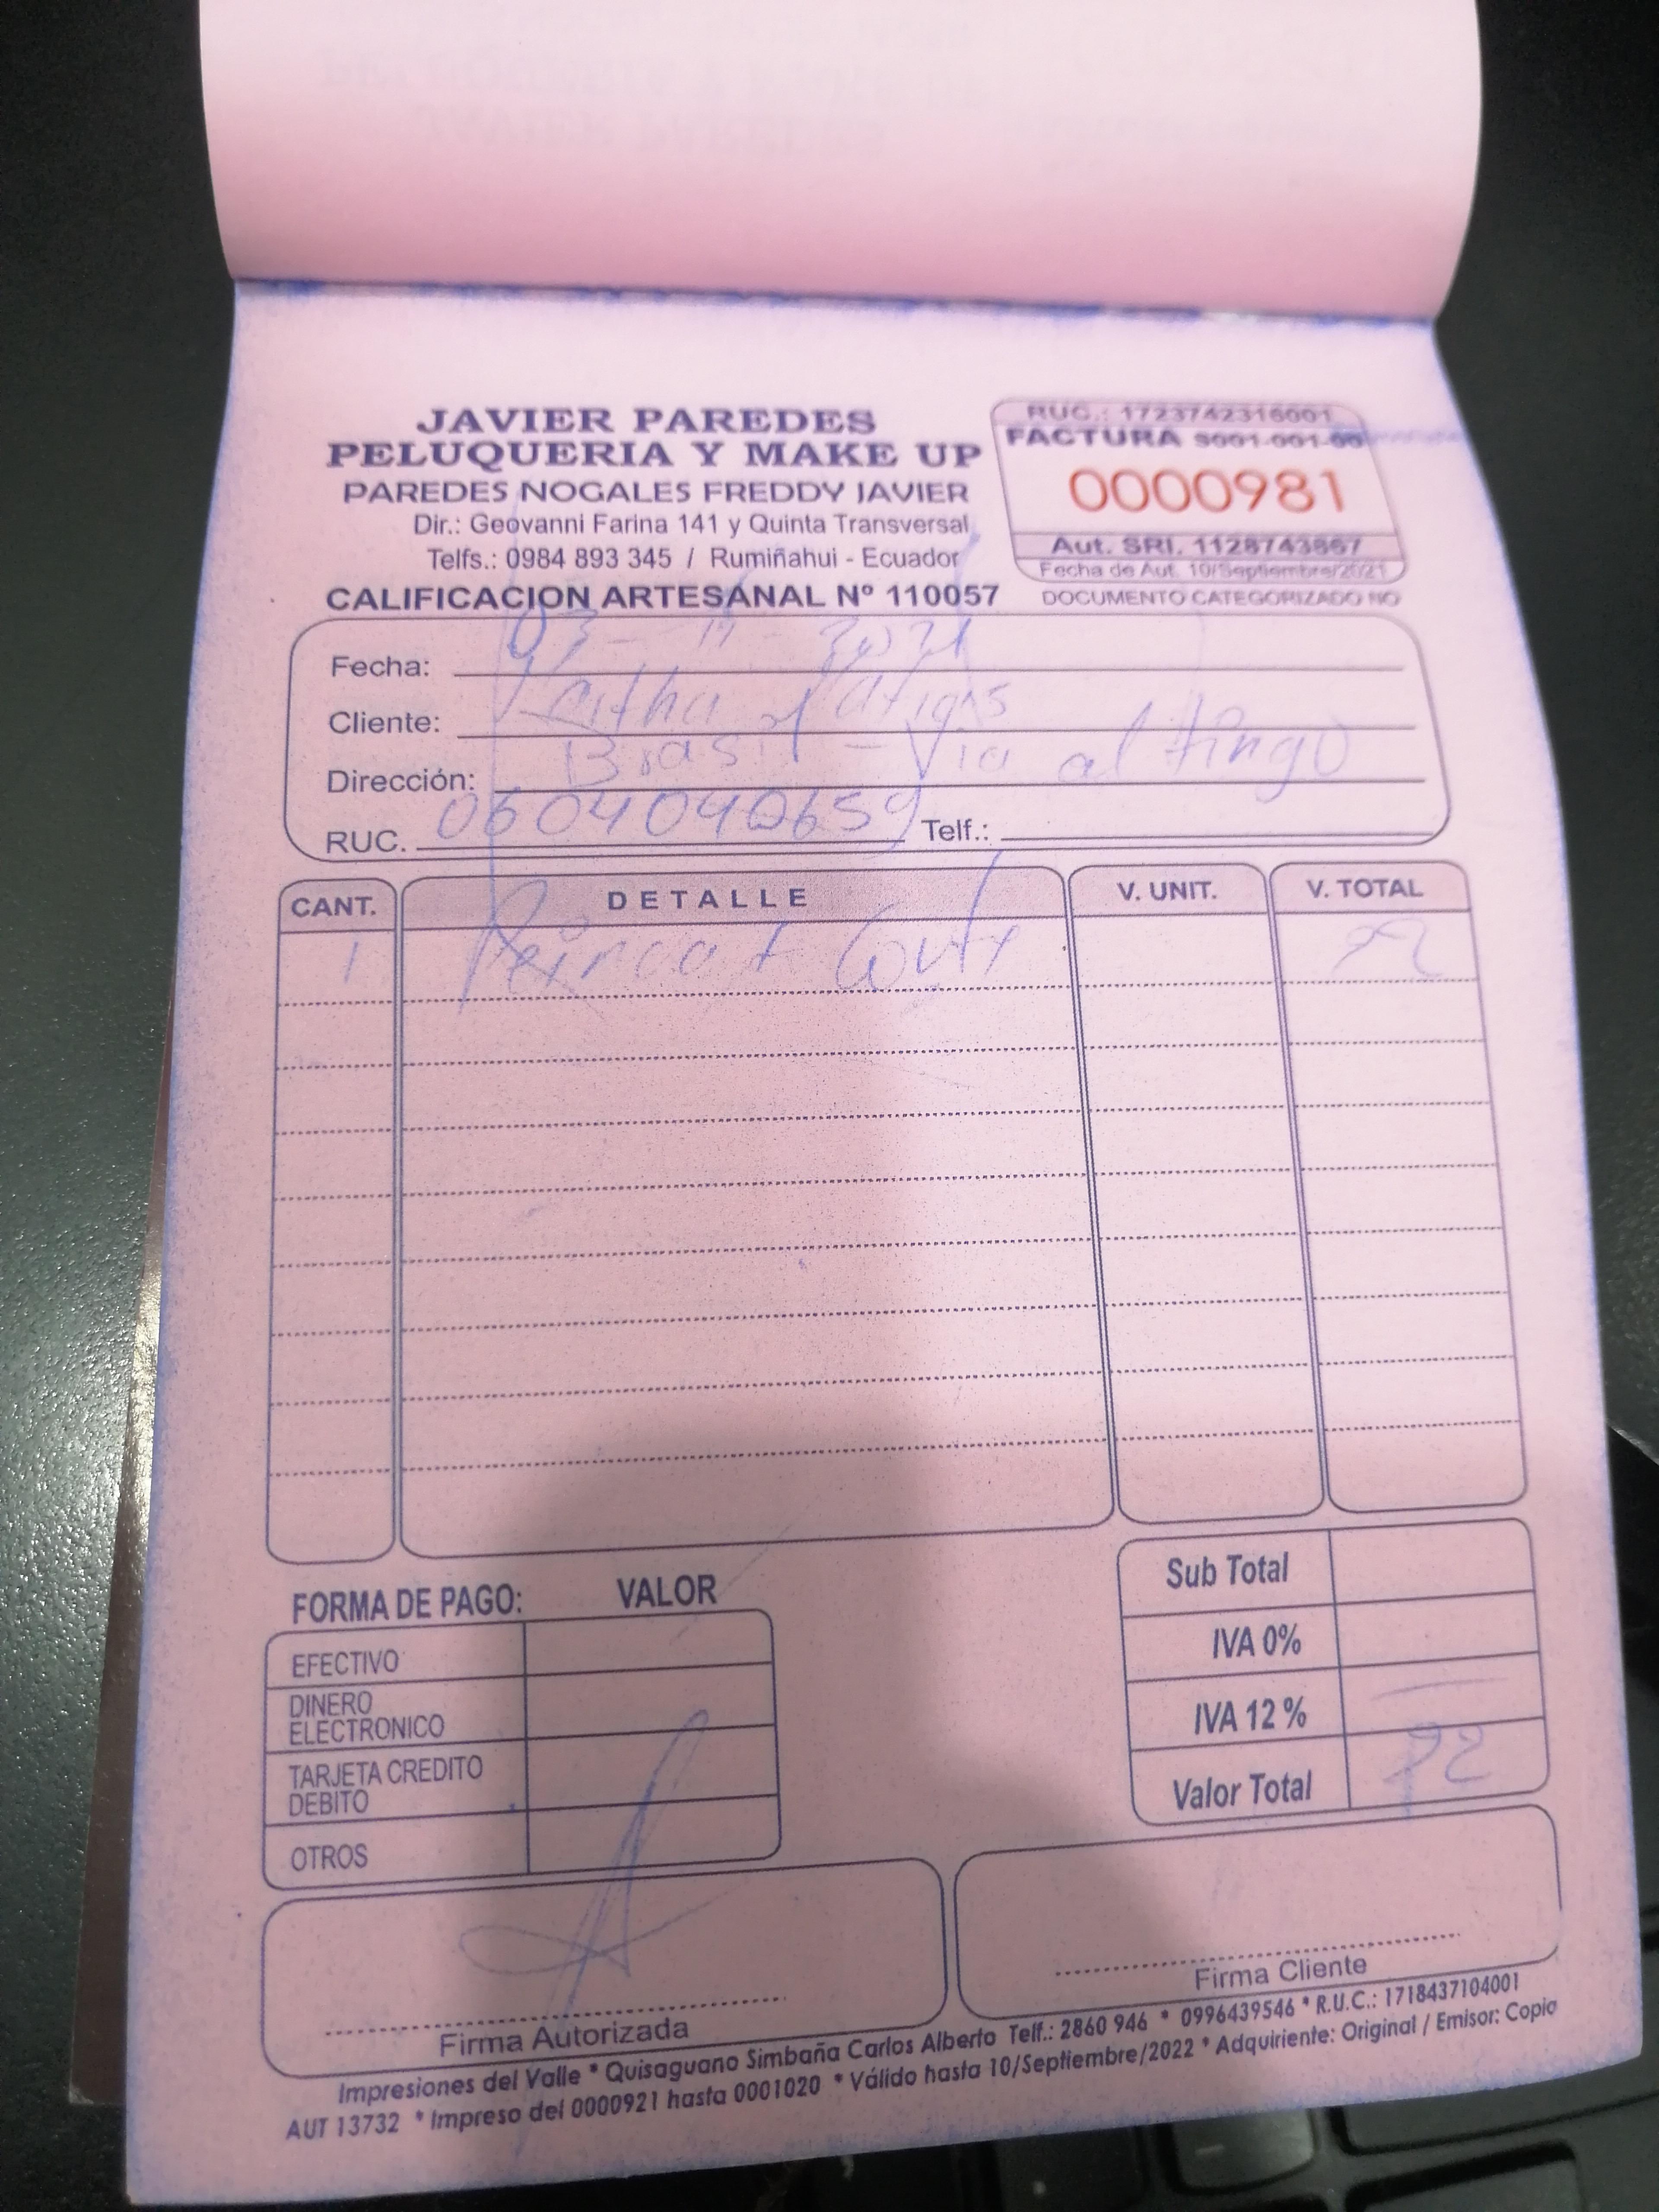 JAVIER PAREDES
PELUQUERIA Y MAKE UP
PAREDES NOGALES FREDDY JAVIER
Dir.: Geovanni Farina 141 y Quinta Transversal
Telfs.: 0984 893 345 / Rumiñahui - Ecuador
CALIFICACION ARTESANAL Nº 110057
RUC.: 1723742316001
FACTURA S001-001-00
0000981
Aut. SRI. 1128743867
Fecha de Aut. 10/Septiembre/2021
DOCUMENTO CATEGORIZADO NO
Fecha: 03-11-2021
Cliente:
Dirección: Brasil - Via al tingo
RUC. 0604040659 Telf.:
CANT. DETALLE V. UNIT. V. TOTAL
1
FORMA DE PAGO: VALOR
EFECTIVO
DINERO ELECTRONICO
TARJETA CREDITO DEBITO
OTROS
Sub Total
IVA 0%
IVA 12 %
Valor Total
Firma Autorizada
Firma Cliente
Impresiones del Valle * Quisaguano Simbaña Carlos Alberto Telf.: 2860 946 * 0996439546 * R.U.C.: 1718437104001
AUT 13732 * Impreso del 0000921 hasta 0001020 * Válido hasta 10/Septiembre/2022 * Adquiriente: Original / Emisor: Copia